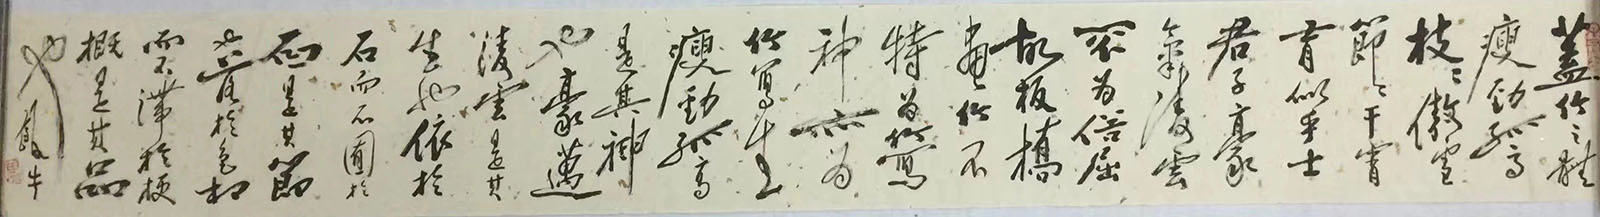 蓋竹之體
瘦勁孤高
枝々傲雪
節々干霄
有似乎士
君子豪
氣凌雲
不为俗屈
故板橋
畫竹不
特为竹寫
神亦为
竹寫生
瘦勁孤高
是其神
也豪邁
凌雲是其
生也依於
石而不囿於
石是其節
也落於色相
而不滯於梗
概是其品
也
牛